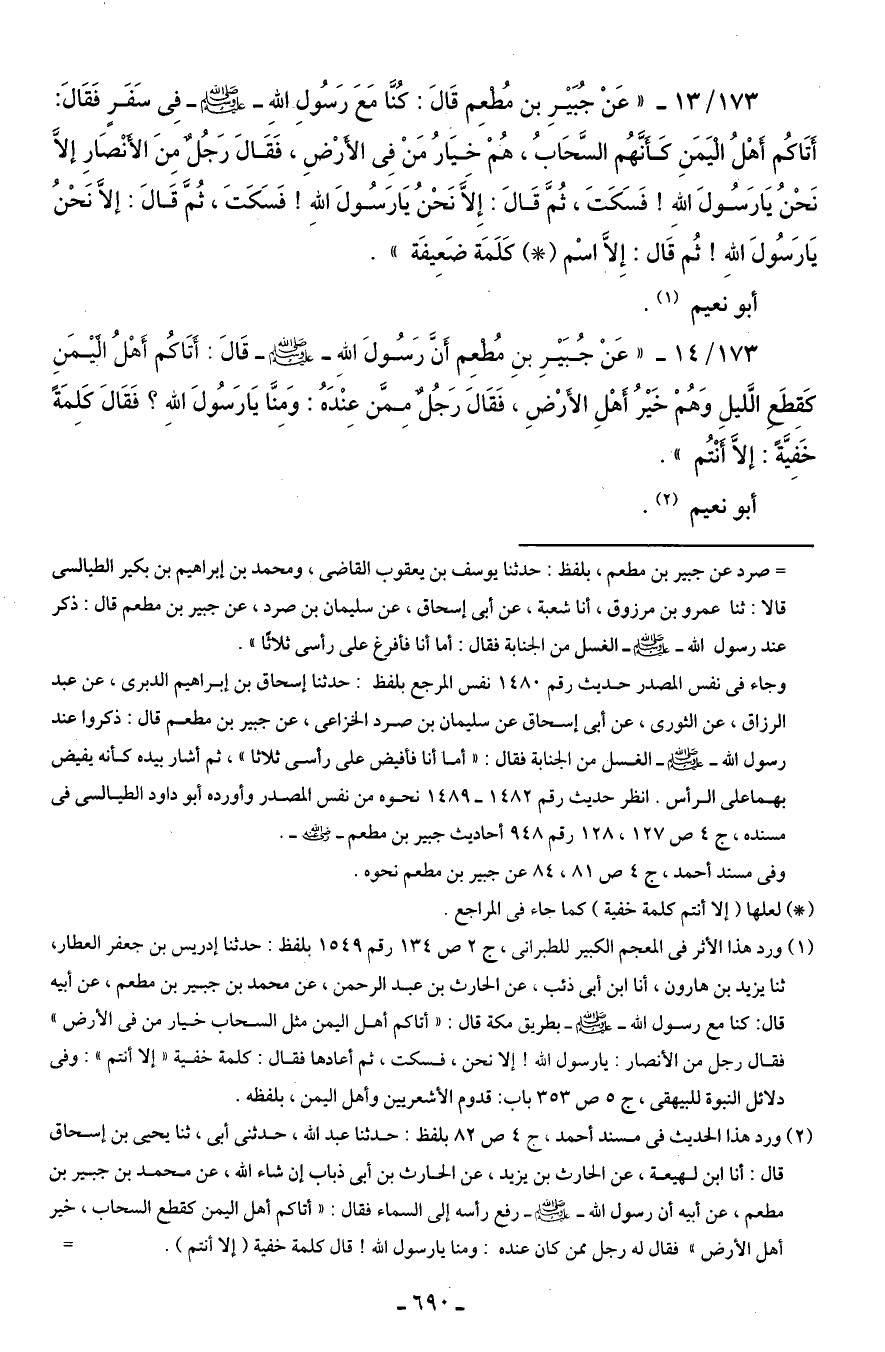 ١٣/١٧٣ ـ « عَنْ جُبَيْرِ بن مُطْعِم قَالَ : كُنَّا مَعَ رَسُولِ اللهِ ـ ﷺ ـ فِى سَفَرٍ فَقَالَ:
أَتَاكُم أَهْلُ الْيَمَنِ كَأَنَّهُم السَّحَابُ ، هُمْ خِيَارُ مَنْ فِى الأَرْضِ ، فَقَالَ رَجُلٌ مِنَ الأَنْصَارِ إلاَّ
نَحْنُ يَارَسُولَ اللهِ ! فَسَكَتَ ، ثُمَّ قَالَ : إلاَّ نَحْنُ يَارَسُولَ اللهِ ! فَسَكَتَ ، ثُمَّ قَالَ : إلاَّ نَحْنُ
يَارَسُولَ اللهِ ! ثُم قَال : إلاَّ اسْم (*) كَلَمَة ضَعِيفَة » .
أبو نعيم (١) .
١٤/١٧٣ ـ « عَنْ جُبَيْرِ بن مُطْعِم أَنَّ رَسُولَ اللهِ ـ ﷺ ـ قَالَ : أَتَاكُم أَهْلُ الْيَمَنِ
كَقِطَعِ الَّليلِ وَهُمْ خَيْرُ أَهْلِ الأَرْضِ ، فَقَالَ رَجُلٌ مِمَّن عِنْدَهُ : وَمِنَّا يَارَسُولَ اللهِ ؟ فَقَال كَلِمَةً
خَفِيَّةً : إلاَّ أَنْتُم » .
أبو نعيم (٢) .
= صرد عن جبير بن مطعم ، بلفظ : حدثنا يوسف بن يعقوب القاضى ، ومحمد بن إبراهيم بن بكير الطيالسى
قالا : ثنا عمرو بن مرزوق ، أنا شعبة ، عن أبى إسحاق ، عن سليمان بن صرد ، عن جبير بن مطعم قال : ذكر
عند رسول الله ـ ﷺ ـ الغسل من الجنابة فقال : أما أنا فأفرغ على رأسى ثلاثًا » .
وجاء فى نفس المصدر حديث رقم ١٤٨٠ نفس المرجع بلفظ : حدثنا إسحاق بن إبراهيم الدبرى ، عن عبد
الرزاق ، عن الثورى ، عن أبى إسحاق عن سليمان بن صرد الخزاعى ، عن جبير بن مطعم قال : ذكروا عند
رسول الله ـ ﷺ ـ الغسل من الجنابة فقال : « أما أنا فأفيض على رأسى ثلاثا » ، ثم أشار بيده كأنه يفيض
بهماعلى الرأس . انظر حديث رقم ١٤٨٢ ـ ١٤٨٩ نحوه من نفس المصدر وأورده أبو داود الطيالسى فى
مسنده ، ج ٤ ص ١٢٧ ، ١٢٨ رقم ٩٤٨ أحاديث جبير بن مطعم ـ رضي الله عنه ـ .
وفى مسند أحمد ، ج ٤ ص ٨١ ، ٨٤ عن جبير بن مطعم نحوه .
(*) لعلها ( إلا أنتم كلمة خفية ) كما جاء فى المراجع .
(١) ورد هذا الأثر فى المعجم الكبير للطبرانى ، ج ٢ ص ١٣٤ رقم ١٥٤٩ بلفظ : حدثنا إدريس بن جعفر العطار،
ثنا يزيد بن هارون ، أنا ابن أبى ذئب ، عن الحارث بن عبد الرحمن ، عن محمد بن جبير بن مطعم ، عن أبيه
قال: كنا مع رسول الله ـ ﷺ ـ بطريق مكة قال : « أتاكم أهل اليمن مثل السحاب خيار من فى الأرض »
فقال رجل من الأنصار : يارسول الله ! إلا نحن ، فسكت ، ثم أعادها فقال : كلمة خفية « إلا أنتم » : وفى
دلائل النبوة للبيهقى ، ج ٥ ص ٣٥٣ باب: قدوم الأشعريين وأهل اليمن ، بلفظه .
(٢) ورد هذا الحديث فى مسند أحمد ، ج ٤ ص ٨٢ بلفظ : حدثنا عبد الله ، حدثنى أبى ، ثنا يحيى بن إسحاق
قال : أنا ابن لهيعة ، عن الحارث بن يزيد ، عن الحارث بن أبى ذباب إن شاء الله ، عن محمد بن جبير بن
مطعم ، عن أبيه أن رسول الله ـ ﷺ ـ رفع رأسه إلى السماء فقال : « أتاكم أهل اليمن كقطع السحاب ، خير
أهل الأرض » فقال له رجل ممن كان عنده : ومنا يارسول الله ! قال كلمة خفية ( إلا أنتم ) . =
ـ ٦٩٠ ـ